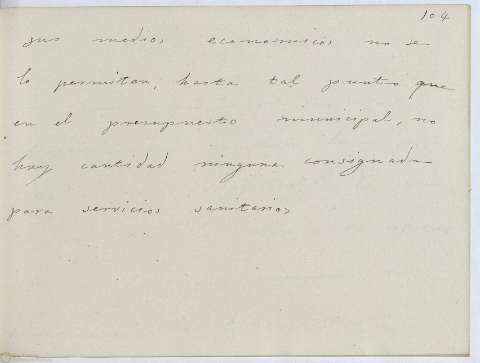 104
sus medios economicos no se
lo permitan, hasta tal punto que
en el presupuesto municipal, no
hay cantidad ninguna consignada
para servicios sanitarios